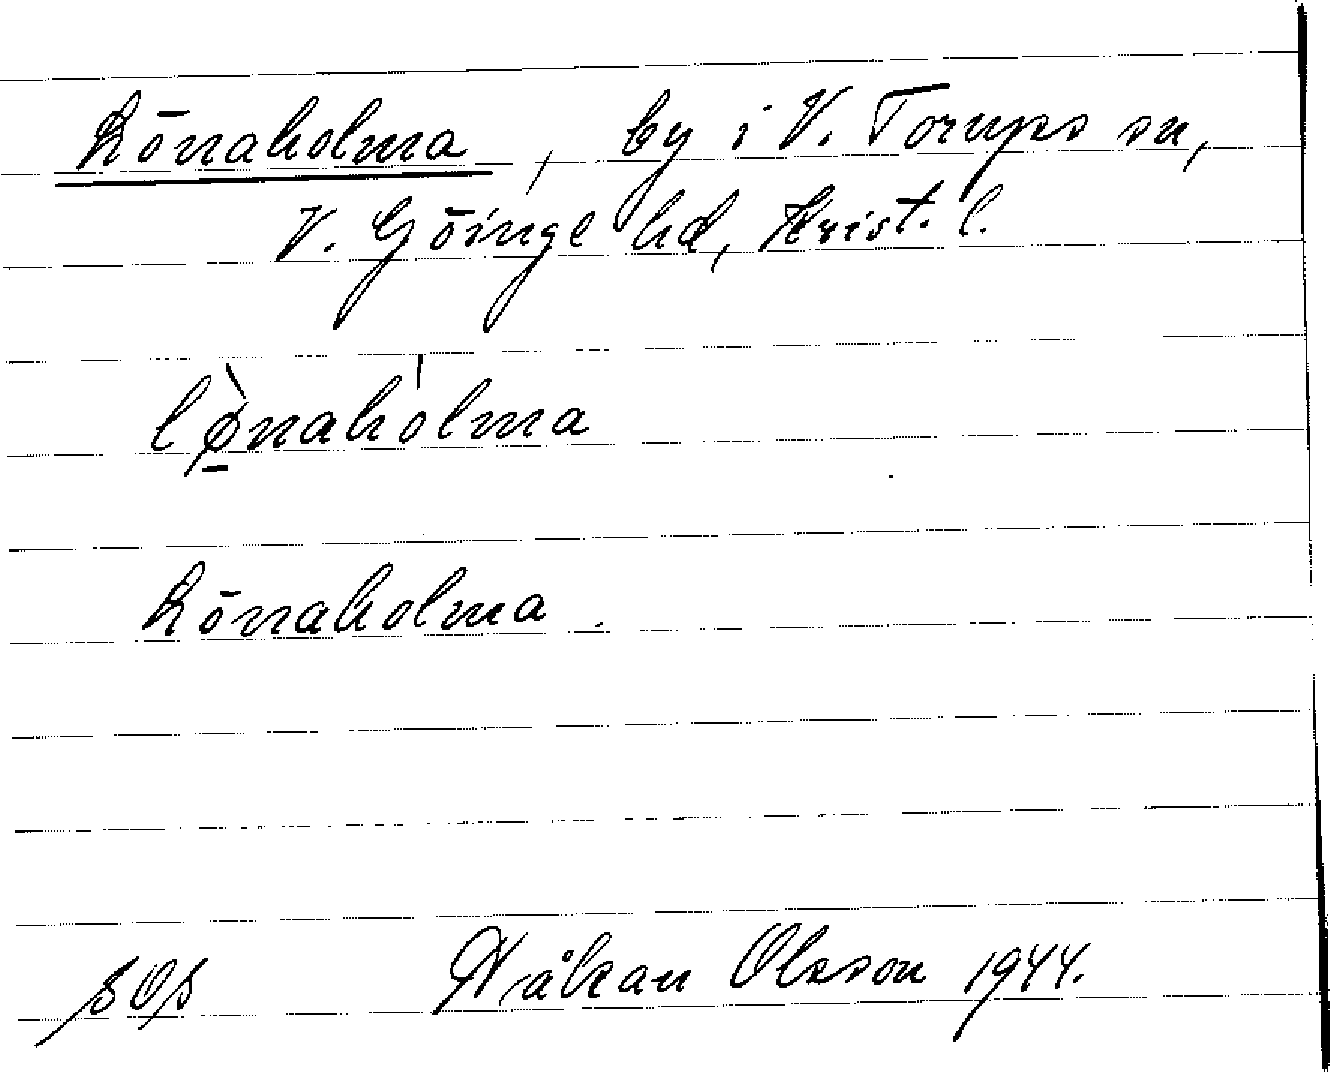 Lönaholma, by i V. Torups sn,
V. Göinge hd, Krist. l.
lø̱̀nahòlma
Lönaholma.
SOS Håkan Olsson 1944.